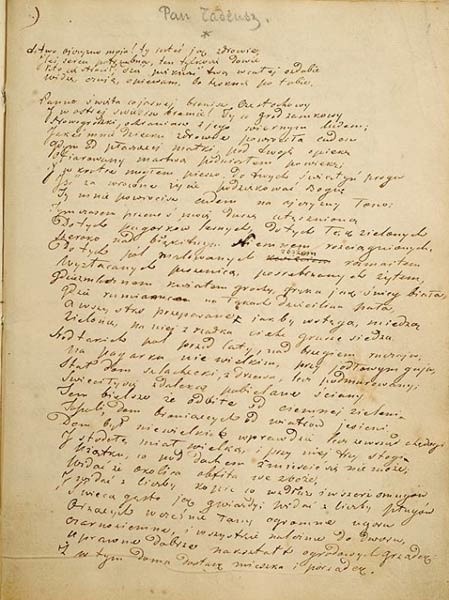 Pan Tadeusz.
Litwo ojczyzno moja! ty jesteś jak zdrowie
Ileś sercu potrzebna, ten tylko się dowie
Kto cię stracił. piękność twą w całej ozdobie
Widzę, opiewam, bo tęsknię po tobie.
Panno święta co jasnej bronisz Częstochowy
I w ostrej świecisz bramie! Ty co gród zamkowy
Nowogródzki ochraniasz z jego wiernym ludem;
Jakeś mnie dziecko zdrowiu powróciła cudem
Gdym od płaczącej matki, pod twoję opiekę
Ofiarowany martwą podniosłem powiekę;
I wkrótce mogłem pieszo do twych świątyń progu
Iść za wrócone życie podziękować Bogu
Tak mnie powrócisz cudem na ojczyzny łono:
Tymczasem przenieś moję duszę utęsknioną
Do tych pagórków leśnych, do tych łąk zielonych
Szeroko nad błękitnym Niemnem rozciągnionych,
Do tych pól malowanych zbożem rozmaitem
Wyzłacanych pszenicą, posrebrzanych żytem,
kwiatem grochy, gryka jak śnieg biała,
Gdzie na łąkach dzięcielina pała
A wszystko przepasane jakby wstęgą, miedzą
Zieloną, na niej z rzadka ciche grusze siedzą.
pól przed laty, nad brzegiem ruczaju,
Na pagórku niewielkim, przy gaju
Stał dom szlachecki, z drzewa, lecz podmurowany;
Świeciły się z daleka pobielane ściany
Tem bielsze że odbite od ciemnej zieleni
Topoli, broniących od wiatrów jesieni.
Dom był niewielki wprawdzie lecz zewsząd chędogi
I stodołę miał wielką, i przy niej trzy stogi
Użątku, co pod dachem zmieścić się nie może;
Widać że okolica obfita we zboże,
I widać z liczby kopic, co wzdłuż i wszerz smugów
Świecą gęsto jak gwiazdy widać z liczby pługów
Orzących wcześnie łany ogromne ugoru
Czarnoziemne, i wszystkie należne do dworu,
Uprawne dobrze nakształt ogrodowych grządek:
w tym domu dostatek mieszka i porządek.